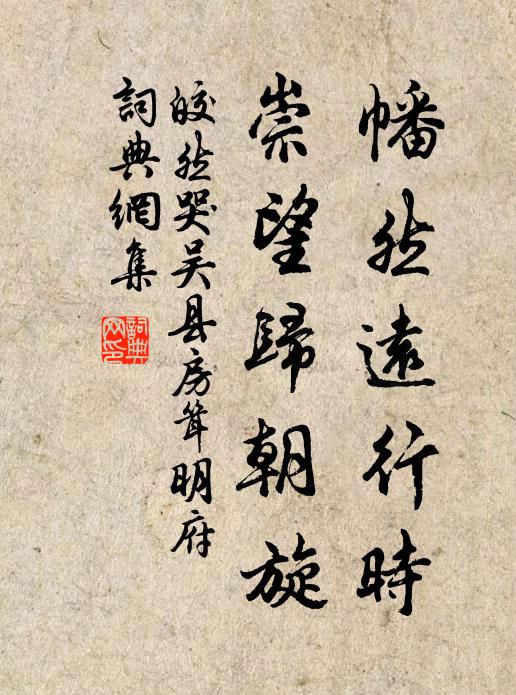 幡然遠行時
崇望歸朝旋
皎然哭吴县房耸明府
詞典網集
詞典
网印